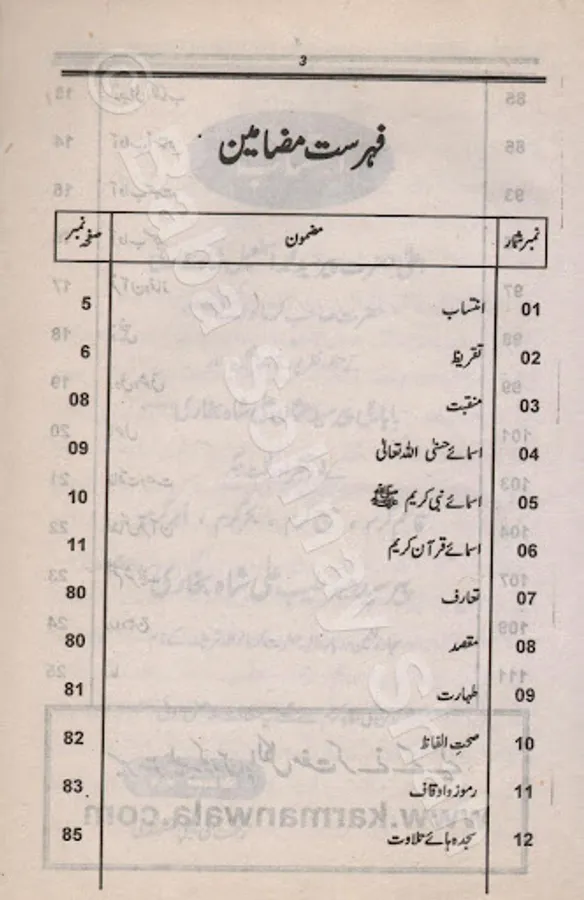 3
فہرست مضامین
نمبر شمار مضمون صفحہ نمبر
01 انتساب 5
02 تقریظ 6
03 منقبت 08
04 اسمائے حسنٰی اللہ تعالٰی 09
05 اسمائے نبی کریم ﷺ 10
06 اسمائے قرآن کریم 11
07 تعارف 80
08 مقصد 80
09 طہارت 81
10 صحتِ الفاظ 82
11 رموز و اوقاف 83
12 سجدہ ہائے تلاوت 85
www.karmanwala.com